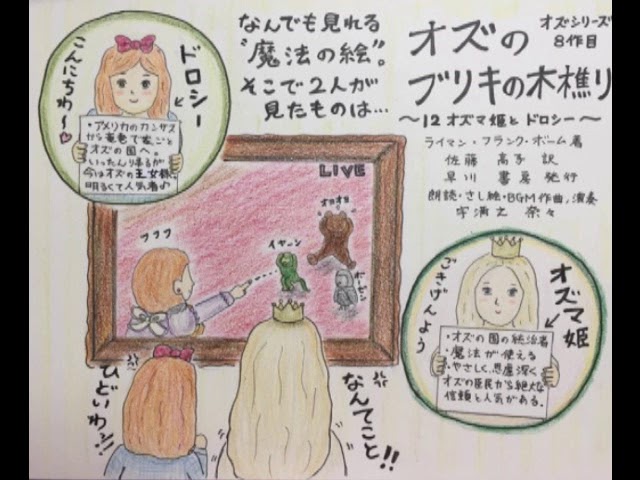 なんでも見れる
"魔法の絵"。
そこで2人が
見たものは…
オズシリーズ
8作目
オズの
ブリキの木樵り
～12 オズマ姫と ドロシー～
ライマン・フランク・ボーム 著
佐藤 高子 訳
早川 書房 発行
朗読・さし絵・BGM作曲,演奏
宇満之 奈々
ドロシー
こんにちわ～♡
・アメリカのカンザス
から竜巻で家ごと
オズの国へ。
いったん帰るが
今はオズの王女様。
明るくて人気者♪
LIVE
オロオロ
イヤーン
ボーゼン
フフフ
ひどいわッ!!
なんてこと!!
オズマ姫
ごきげんよう
・オズの国の統治者
・魔法が使える
・やさしく、思慮深く、
オズの臣民から絶大な
信頼と人気がある。